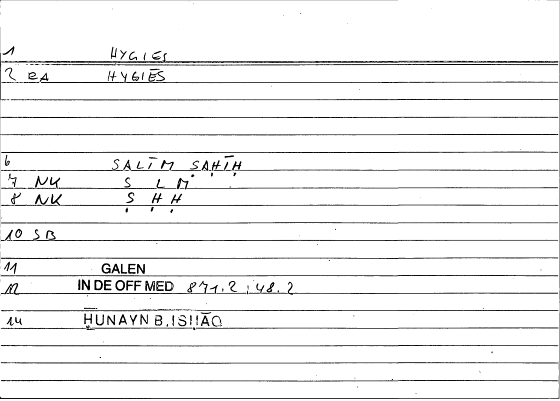 1 HYGIES
2 EA HYGIĒS
6 SALĪM ṢAḤĪḤ
7 NK S L M
8 NK Ṣ Ḥ Ḥ
10 SB
11 GALEN
12 IN DE OFF MED 871.2 ; 48.2
14 ḤUNAYN B. ISḤĀQ